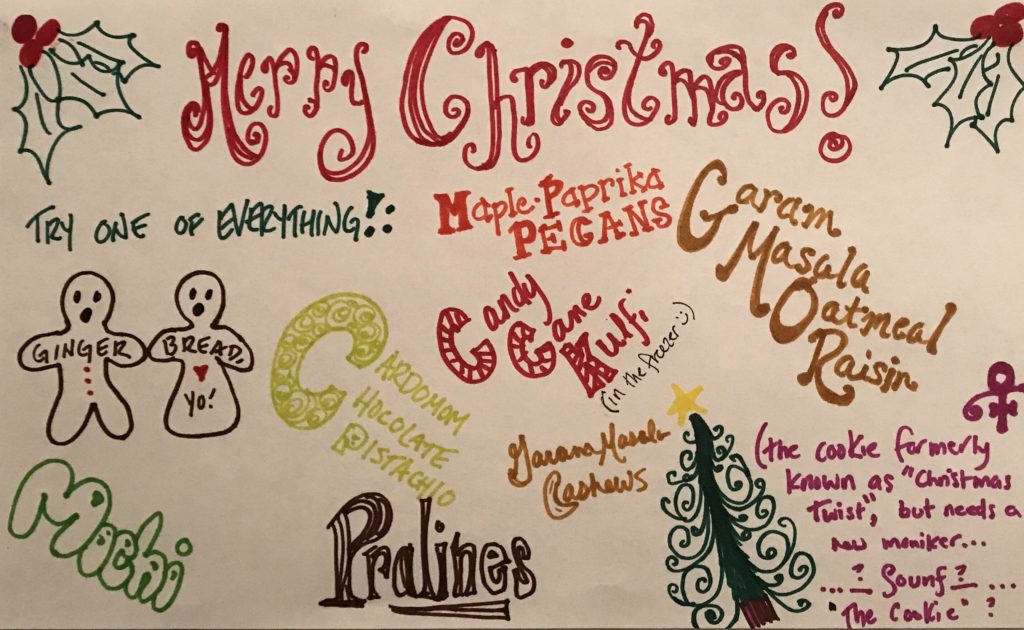 Merry Christmas!
TRY ONE OF EVERYTHING!:
Maple-Paprika
PECANS
Garam
Masala
Oatmeal
Raisin
GINGER BREAD,
YO!
CARDOMOM
CHOCOLATE
PISTACHIO
Candy
Cane
Kulfi
(in the freezer :))
Garam Masala
Cashews
(the cookie formerly
known as "Christmas
Twist", but needs a
new moniker...
...? Sounf? ...
"The Cookie" ?
Mochi
Pralines